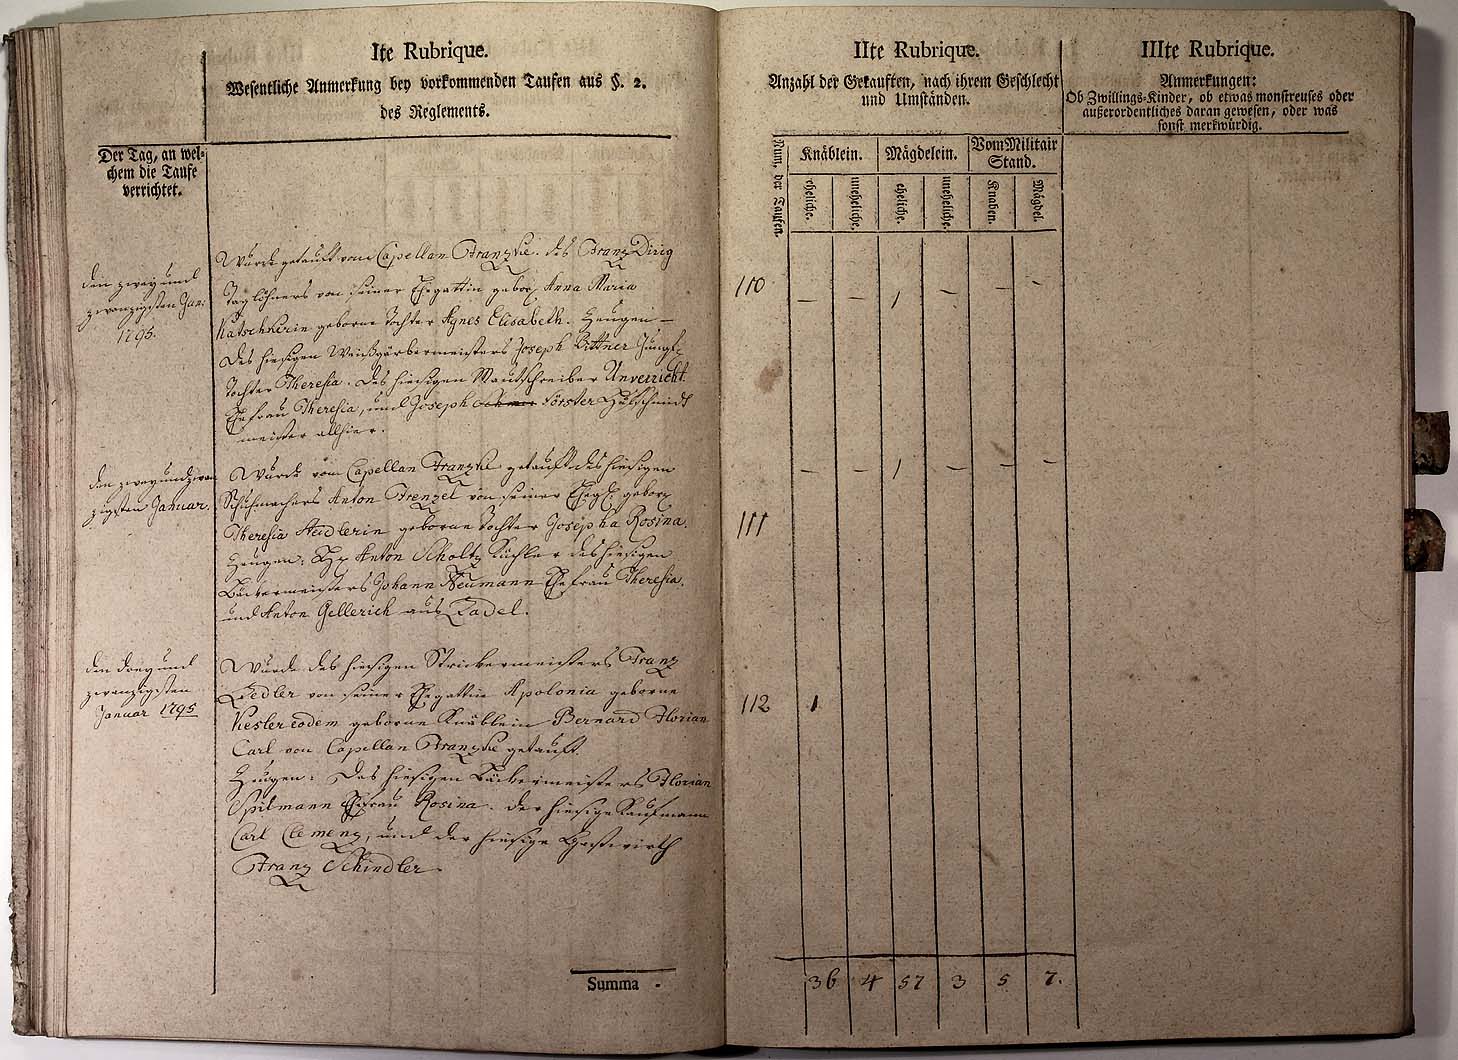 Ite Rubrique.
Wesentliche Anmerkung bey vorkommenden Taufen aus §. 2.
des Reglements.
Der Tag, an wel-
chem die Taufe
verrichtet.
den zwey und
zwanzigsten Jan:
1795.
Wurde getauft vom Capellan Franzke. des Franz Dirig
Taglöhners von seiner Ehegattin gebor. Anna Maria
Katschkerin geborne Tochter Agnes Elisabeth. Zeugen —
Des hiesigen Weißgärbermeisters Joseph Bittner Jungf.
Tochter Theresia. des hiesigen Mautschreiber Unverricht
Ehefrau Theresia, und Joseph Förster Hufschmidt
meister allhier.
den zwey und zwan
zigsten Januar.
Wurde vom Capellan Franzke getauft des hiesigen
Schuhmachers Anton Frenzel von seiner Eheg. gebor.
Theresia Heidlerin geborne Tochter Josepha Rosina.
Zeugen: Anton Scholtz Küchler des hiesigen
Bäckermeisters Johann Neumann Ehefrau Theresia.
und Anton Gellerich aus Zadel.
den drey und
zwanzigsten
Januar 1795
Wurde des hiesigen Strickermeisters Franz
Zedler von seiner Ehegattin Apolonia geborne
Kesler eodem geborne Knäblein Bernard Florian
Carl von Capellan Franzke getauft.
Zeugen: Des hiesigen Bäckermeisters Florian
Spilmann Ehefrau Rosina. der hiesige Kaufmann
Carl Clemenz, und der hiesige Gastwirth
Franz Schindler.
Summa -
IIte Rubrique.
Anzahl der Getauften, nach ihrem Geschlecht
und Umständen.
Num. der Taufen.
Knäblein. Mägdelein. Vom Militair Stand.
eheliche. uneheliche. eheliche. uneheliche. Knaben. Mägdel.
110 — — 1 — — —
111 — — 1 — — —
112 1
36 4 57 3 5 7.
IIIte Rubrique.
Anmerkungen:
Ob Zwillings-Kinder, ob etwas monstreuses oder
außerordentliches daran gewesen, oder was
sonst merkwürdig.